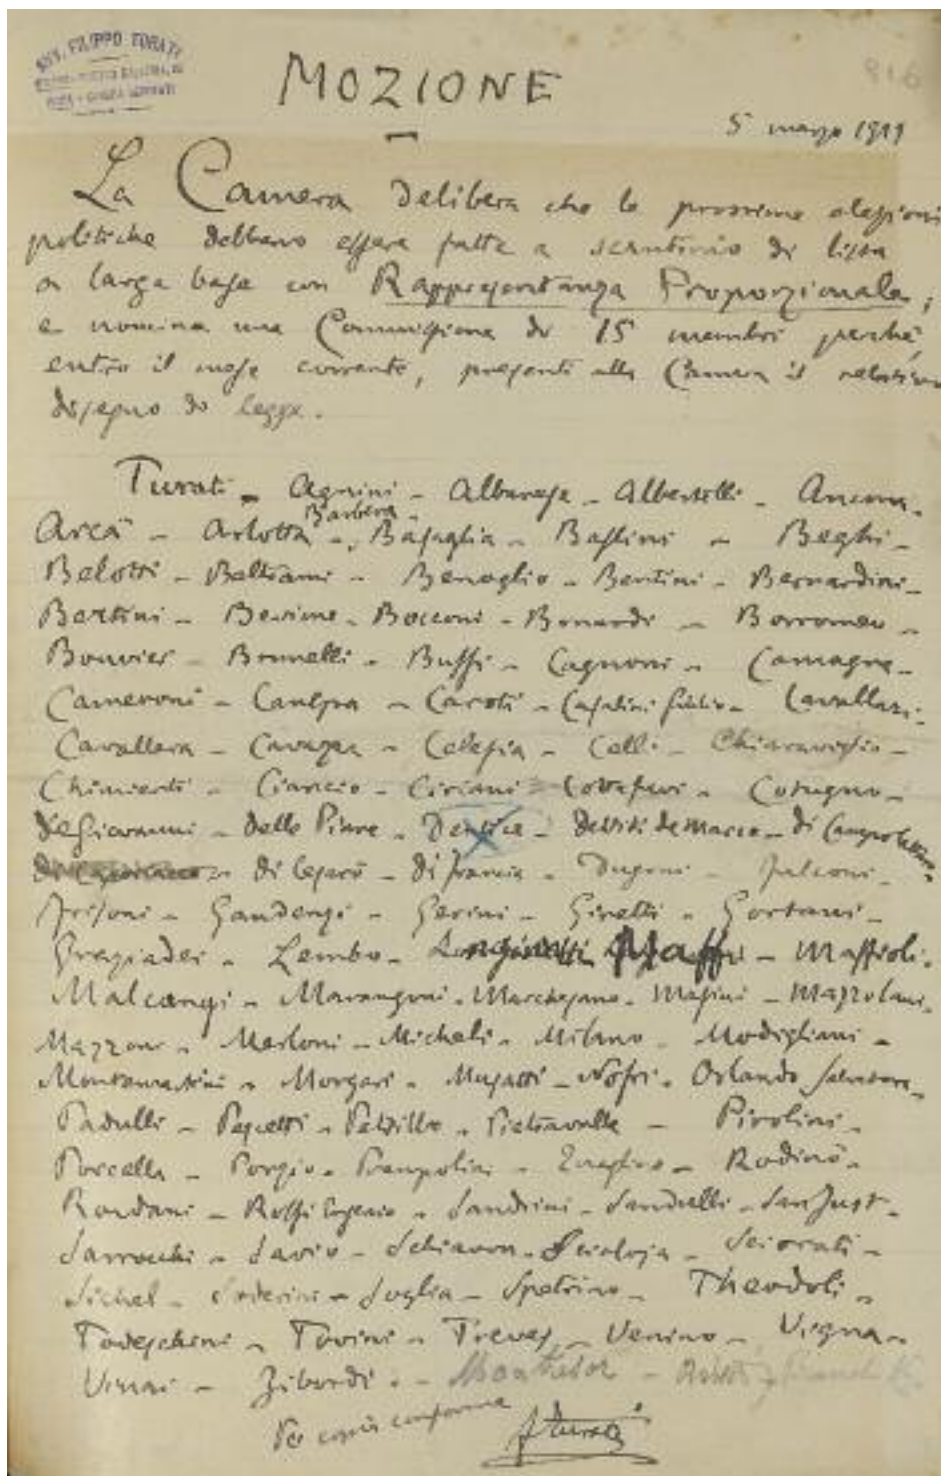 ON. FILIPPO TURATI
MOZIONE
5 marzo 1919
La Camera delibera che le prossime elezioni
politiche debbano essere fatte a scrutinio di lista
a larga base con Rappresentanza Proporzionale;
e nomina una Commissione di 15 membri perché,
entro il mese corrente, presenti alla Camera il relativo
disegno di legge.
Turati - Agnini - Albanese - Albertelli - Ancona -
Barbera -
Arcà - Arlotta - Basaglia - Baslini - Beghi -
Belotti - Beltrami - Benaglio - Bentini - Bernardini -
Bertini - Bevione - Bocconi - Bonardi - Borromeo -
Bouvier - Brunelli - Bussi - Cagnoni - Camagna -
Cameroni - Canepa - Caroti - Casalini Giulio - Cavallari -
Cavallera - Cavazza - Celesia - Celli - Chiaraviglio -
Chimienti - Ciancio - Ciriani - Cottafavi - Cotugno -
de Giovanni - delle Piane - Dentice - De Viti de Marco - di Campolattaro -
di Cesarò - di Francia - Dugoni - Falconi -
Frisoni - Gaudenzi - Gerini - Giretti - Gortani -
Graziadei - Lembo - Longinotti Maffi - Maffioli -
Malcangi - Marangoni - Marchesano - Masini - Mazzolani -
Mazzoni - Merloni - Micheli - Milano - Modigliani -
Montemartini - Morgari - Musatti - Nofri - Orlando Salvatore -
Padulli - Pescetti - Petrillo - Pietravalle - Pirolini -
Porcella - Porzio - Prampolini - Rodinò -
Rondani - Rossi Eugenio - Sandrini - Sandulli - Sanjust -
Sarrocchi - Savio - Schiavon - Scialoja - Sciorati -
Sichel - Soderini - Soglia - Spetrino - Theodoli -
Todeschini - Tovini - Treves - Venino - Vigna -
Vinai - Zibordi -
Per copia conforme
F Turati